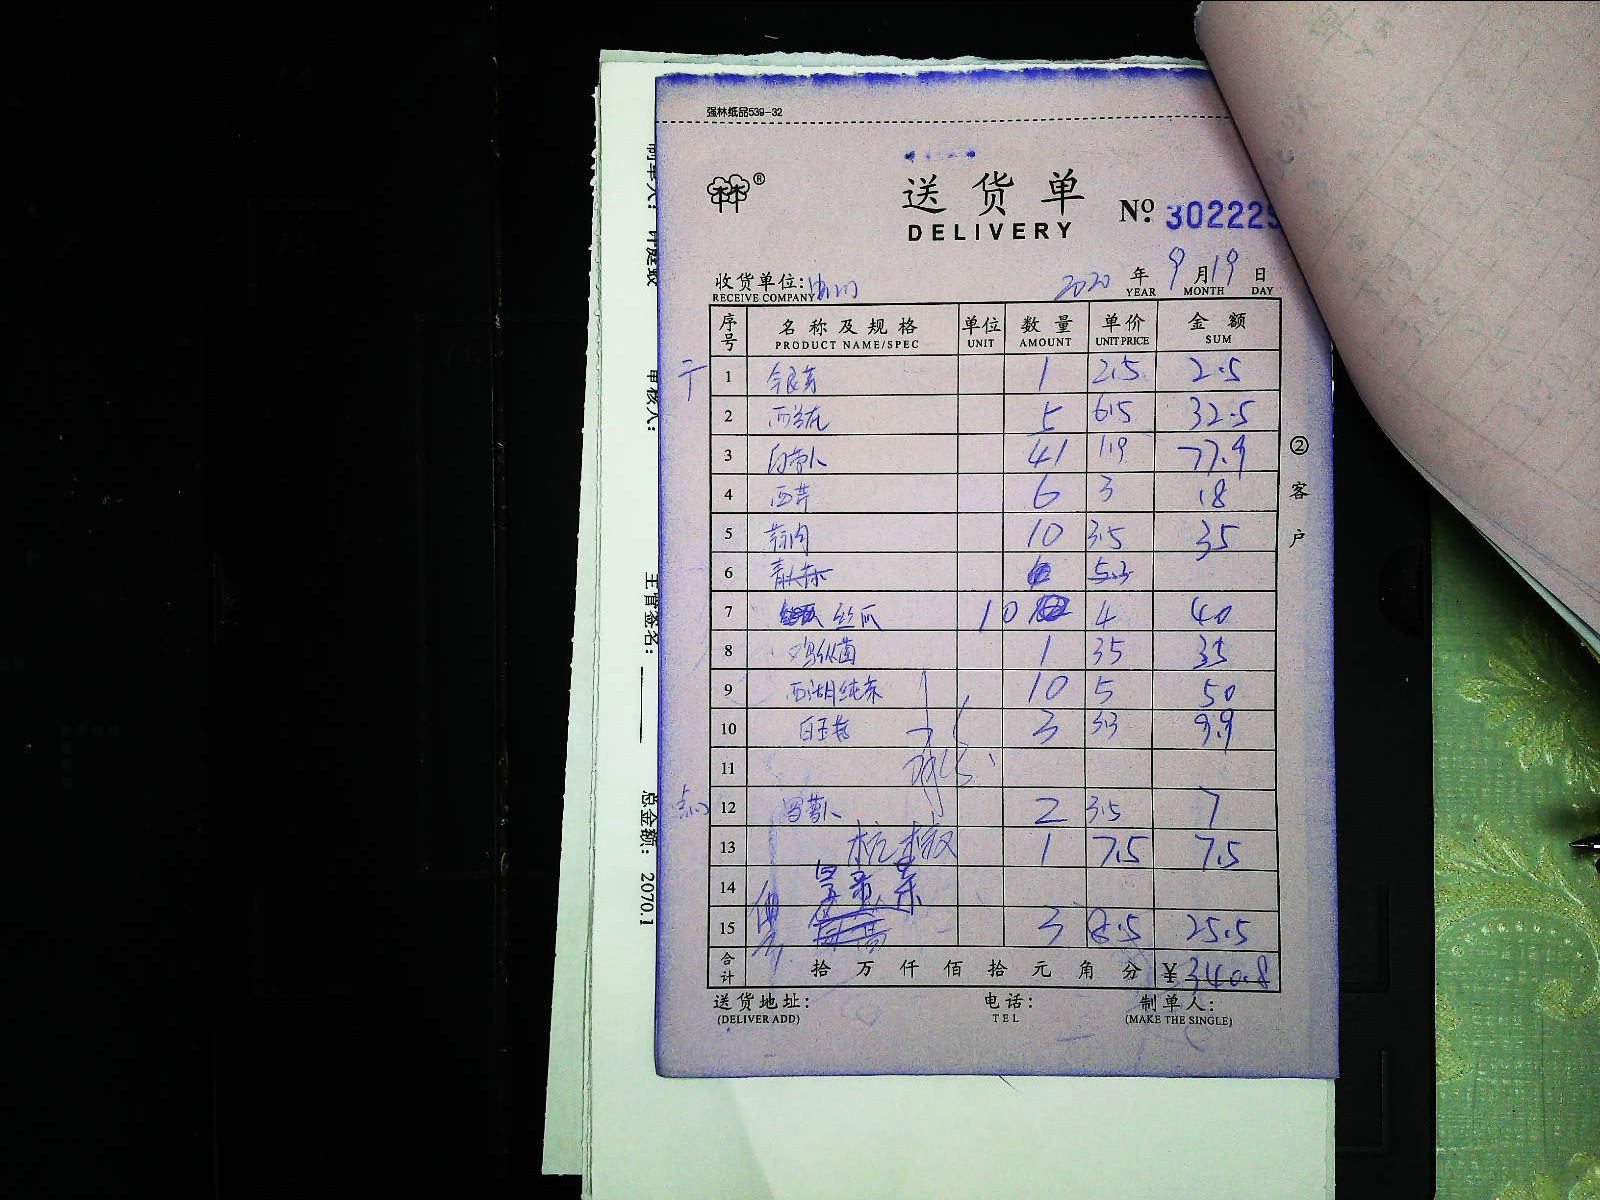 强林纸品539-32
送货单
DELIVERY
Nº 302225
收货单位:
RECEIVE COMPANY
2020 年 9 月 19 日
YEAR MONTH DAY
序号 名称及规格 单位 数量 单价 金额
PRODUCT NAME/SPEC UNIT AMOUNT UNIT PRICE SUM
干
1 金银菇 1 2.5 2.5
2 西兰花 5 6.5 32.5
3 白萝卜 41 1.9 77.9
4 西芹 6 3 18
5 蒜肉 10 3.5 35
6 5.3
7 丝瓜 10 4 40
8 鸡纵菌 1 35 35
9 西湖纯菜 10 5 50
10 白玉菇 3 3.3 9.9
11
12 萝卜 2 3.5 7
13 杭椒 1 7.5 7.5
14
15 3 8.5 25.5
合计 拾万仟佰拾元角分 ¥340.8
送货地址:
(DELIVER ADD)
电话:
TEL
制单人:
(MAKE THE SINGLE)
②客户
审核人:
主管签名:
总金额: 2070.1